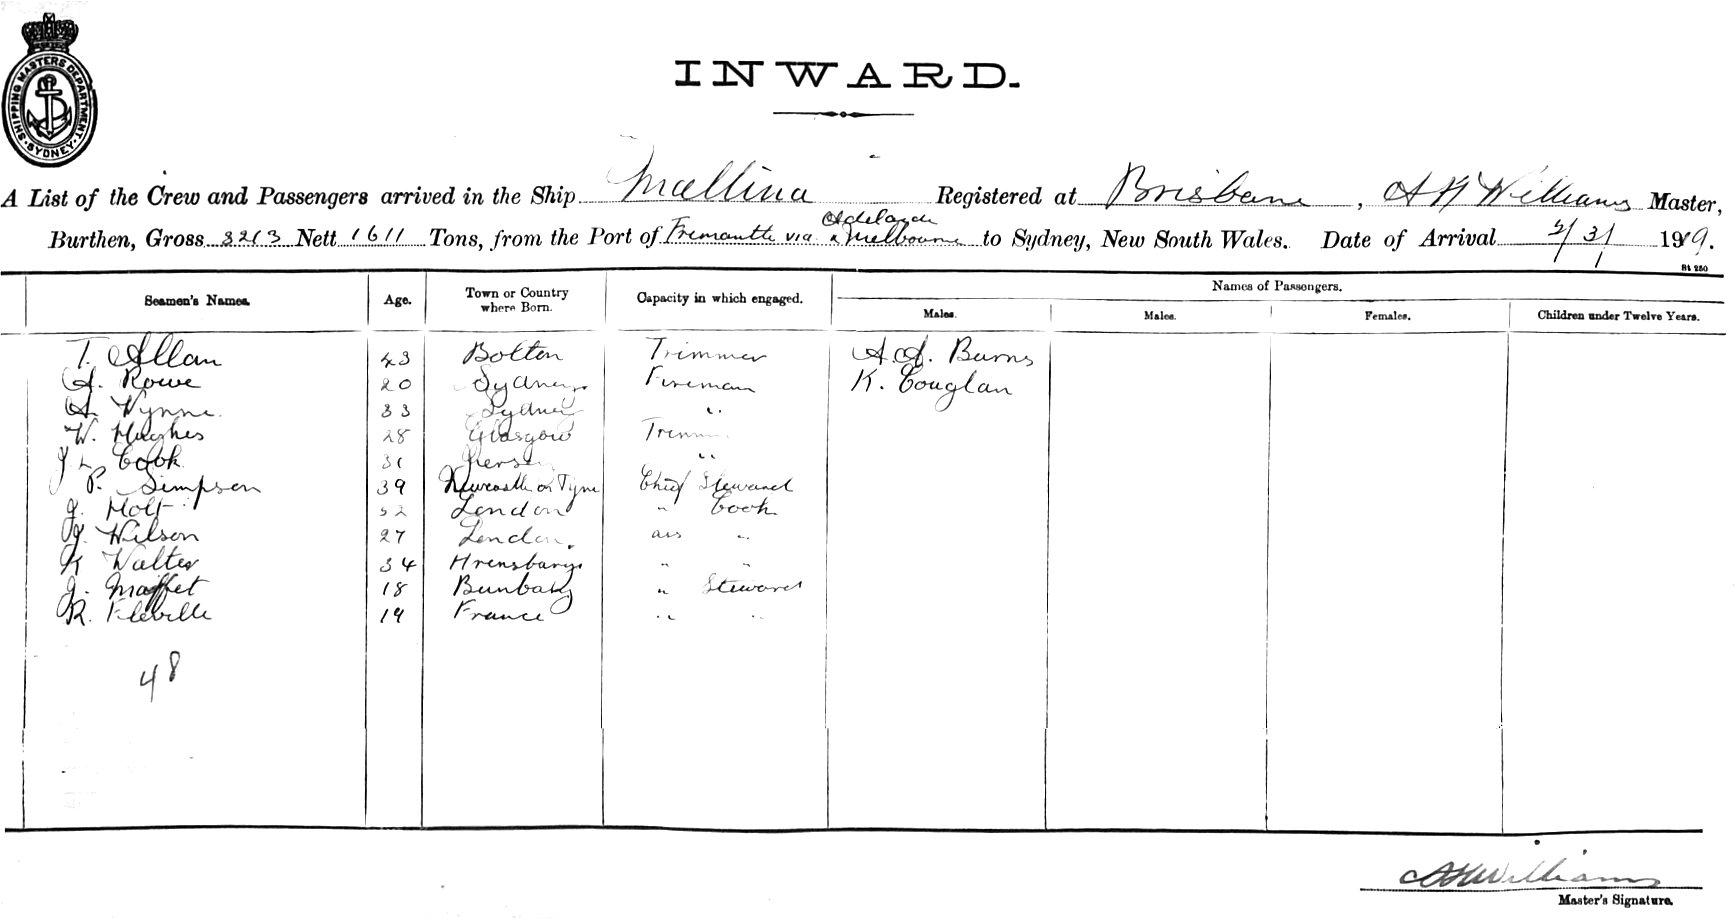 SHIPPING MASTERS DEPARTMENT SYDNEY
INWARD.
A List of the Crew and Passengers arrived in the Ship Mallina Registered at Brisbane, A H Williams Master,
Adelaide
Burthen, Gross 3213 Nett 1611 Tons, from the Port of Fremantle via & Melbourne to Sydney, New South Wales. Date of Arrival 2/3/ 1919.
St 250
Seamen's Names. Age. Town or Country where Born. Capacity in which engaged. Names of Passengers.
Males. Males. Females. Children under Twelve Years.
T. Allan 43 Bolton Trimmer A. A. Burns
A. Rowe 20 Sydney Fireman K. Couglan
A. Wynne. 33 Sydney "
W. Hughes 28 Glasgow Trimm
J L Cook 31 Jersey "
P. Simpson 39 Newcastle on Tyne Chief Steward
J. Holt 52 London " Cook
J. Wilson 27 London. ass "
K Walter 34 " "
J. Maffet 18 Bunbary " Steward
R. Fleville 19 France " "
48
A H Williams
Master's Signature.